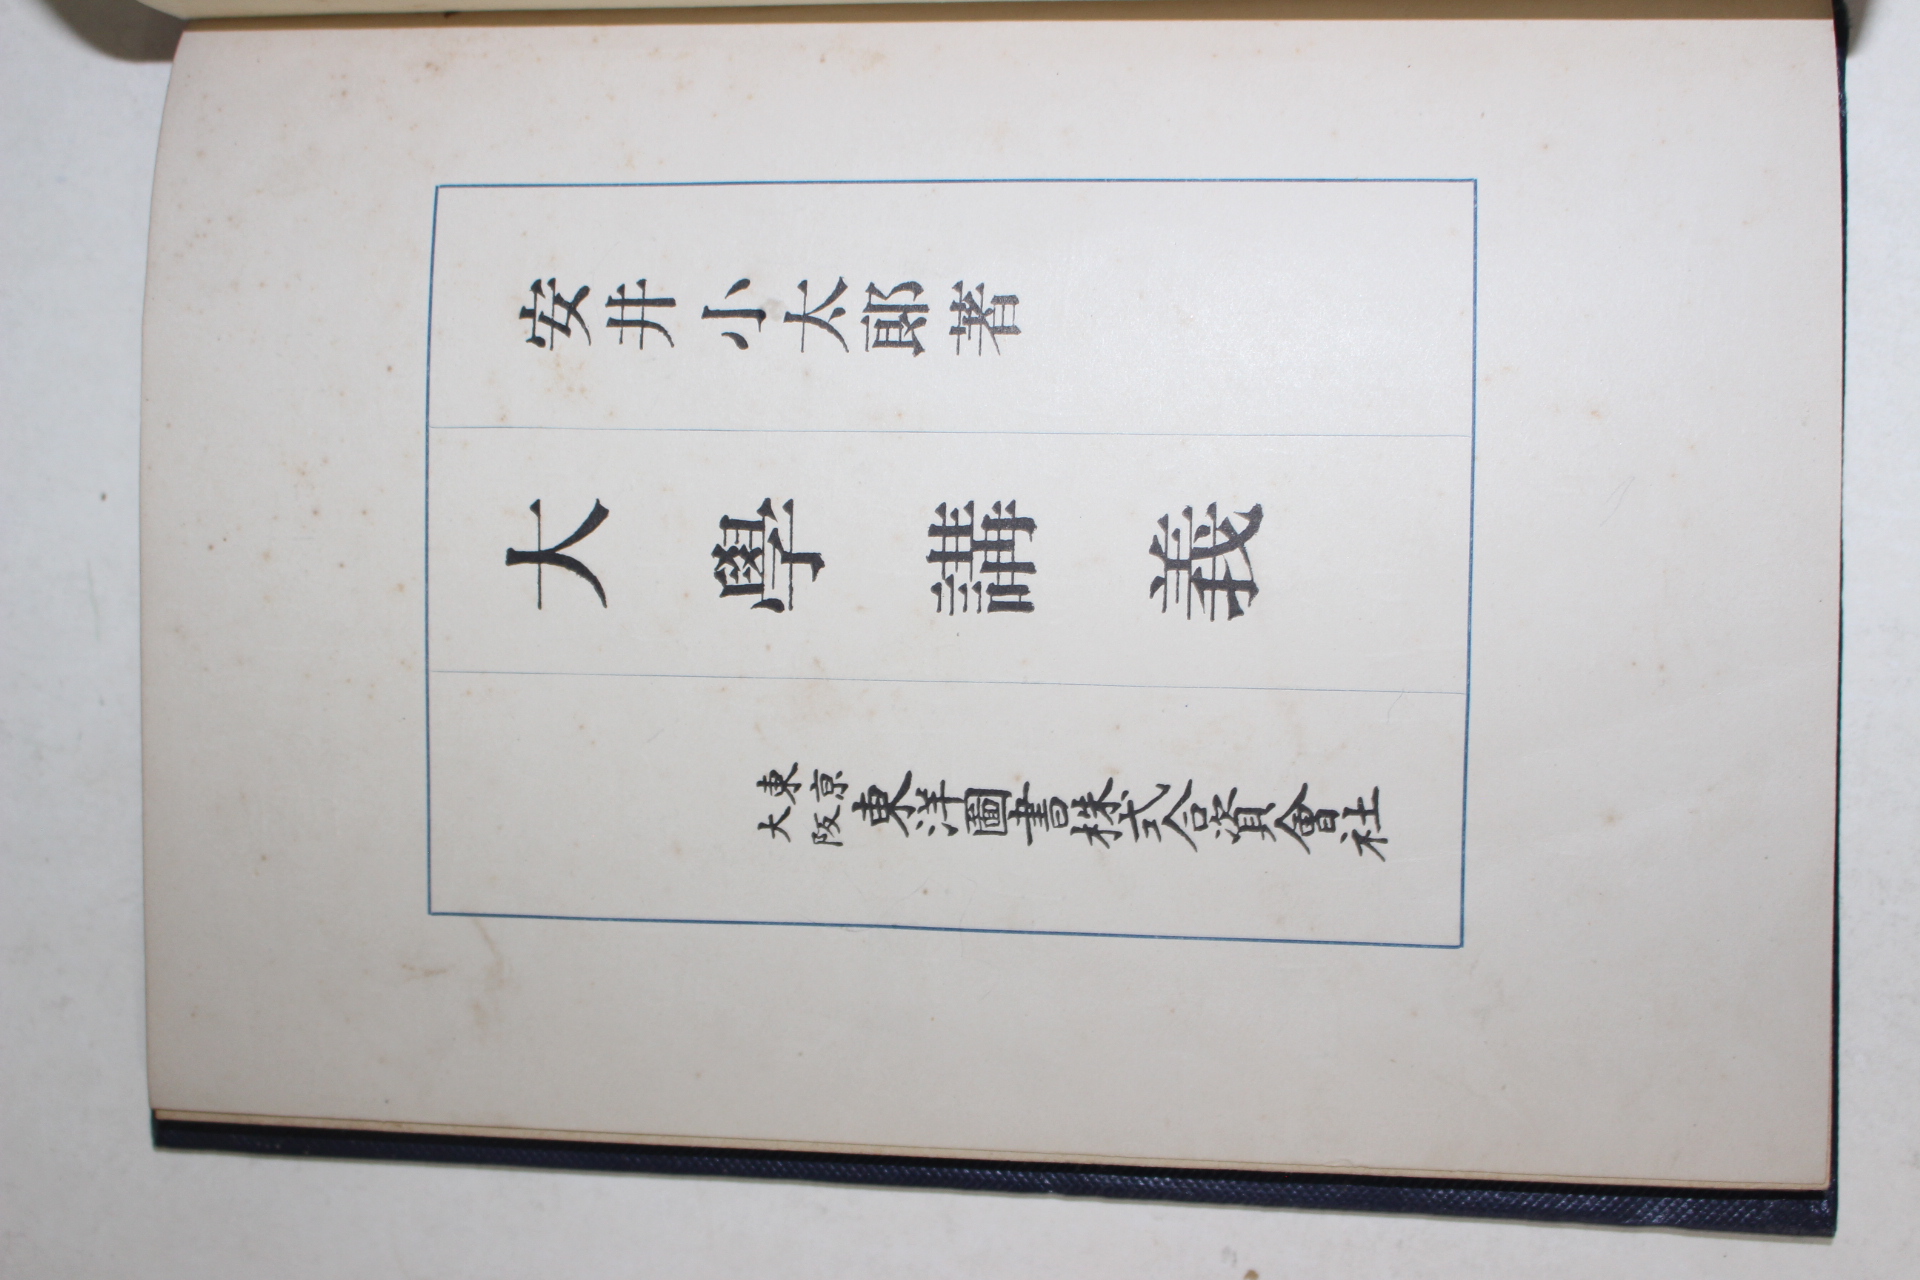 安井小太郎著
大學講義
東京
大阪
東洋圖書株式合資會社